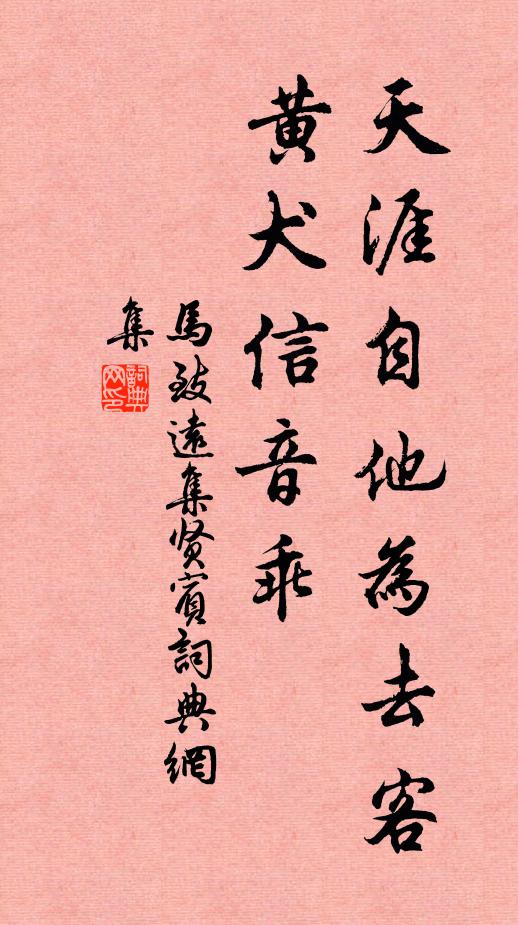 天涯自他為去客
黃犬信音乖
馬致遠集賢賓詞典網
集
詞典
网印